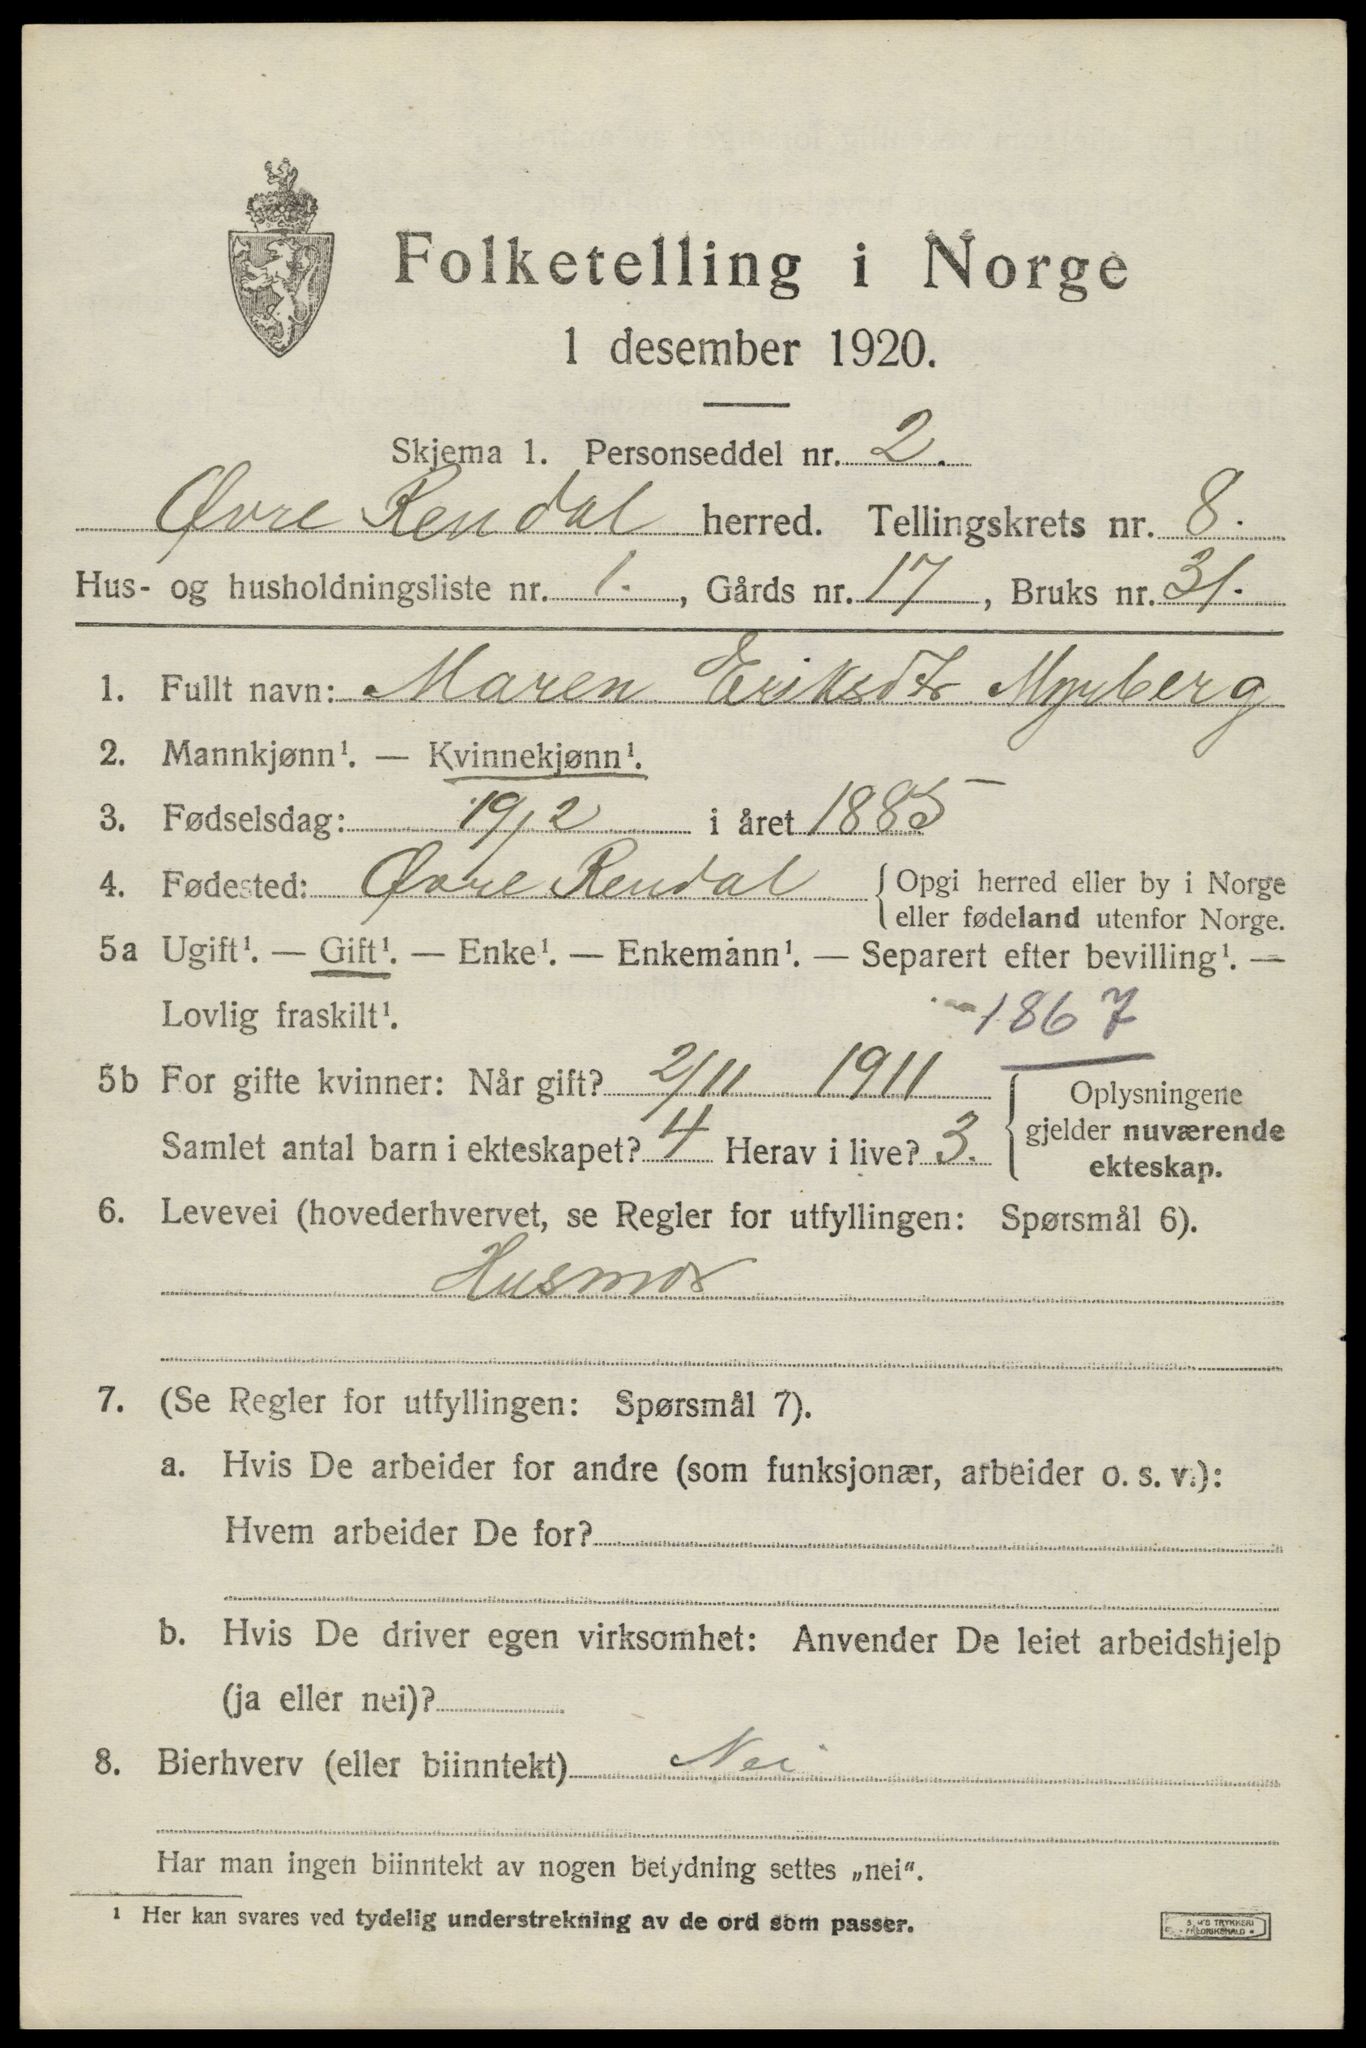 Folketelling i Norge
1 desember 1920.
Skjema 1. Personseddel nr. 2.
Øvre Rendal herred. Tellingskrets nr. 8.
Hus- og husholdningsliste nr. 1., Gårds nr. 17, Bruks nr. 31.
1. Fullt navn: Maren Eriksdtr Myrberg
2. Mannkjønn¹. — Kvinnekjønn¹.
3. Fødselsdag: 19/2 i året 1885
4. Fødested: Øvre Rendal { Opgi herred eller by i Norge
eller fødeland utenfor Norge.
5a Ugift¹. — Gift¹. — Enke¹. — Enkemann¹. — Separert efter bevilling¹. —
Lovlig fraskilt¹. 1867
5b For gifte kvinner: Når gift? 2/11 1911 { Oplysningene
Samlet antal barn i ekteskapet? 4 Herav i live? 3. gjelder nuværende
ekteskap.
6. Levevei (hovederhvervet, se Regler for utfyllingen: Spørsmål 6).
Husmor
7. (Se Regler for utfyllingen: Spørsmål 7).
a. Hvis De arbeider for andre (som funksjonær, arbeider o. s. v.):
Hvem arbeider De for?
b. Hvis De driver egen virksomhet: Anvender De leiet arbeidshjelp
(ja eller nei)?
8. Bierhverv (eller biinntekt) Nei
Har man ingen biinntekt av nogen betydning settes „nei“.
¹ Her kan svares ved tydelig understrekning av de ord som passer.
TRYKKERI
FREDRIKSHALD